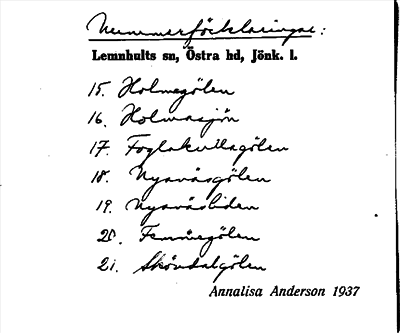 Nummerförklaringar:
Lemnhults sn, Östra hd, Jönk. l.
15. Holmegölen
16. Holmasjön
17. Foglakullagölen
18. Nyavåsgölen
19. Nyavåsliden
20. 
21. Skördalgölen
Annalisa Anderson 1937